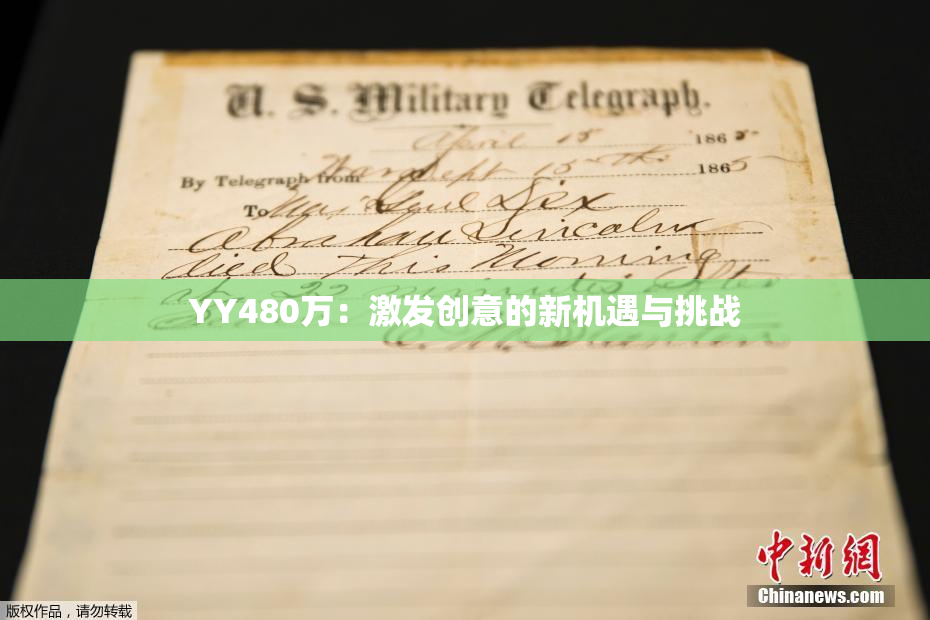 U. S. Military Telegraph.
April 15 1865
By Telegraph from War Dept 15th 1865
To Maj Genl Dix
Abraham Lincoln
died This Morning
at 22 minutes after
YY480万：激发创意的新机遇与挑战
E. M. Stanton
中新网
Chinanews.com
版权作品，请勿转载